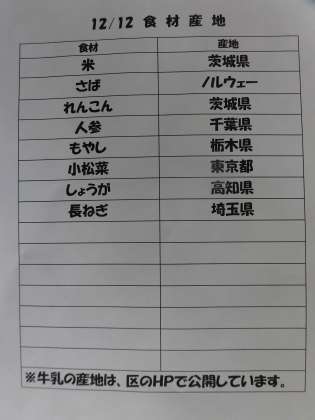 12/12 食材産地
食材 産地
米 茨城県
さば ノルウェー
れんこん 茨城県
人参 千葉県
もやし 栃木県
小松菜 東京都
しょうが 高知県
長ねぎ 埼玉県
※牛乳の産地は、区のHPで公開しています。